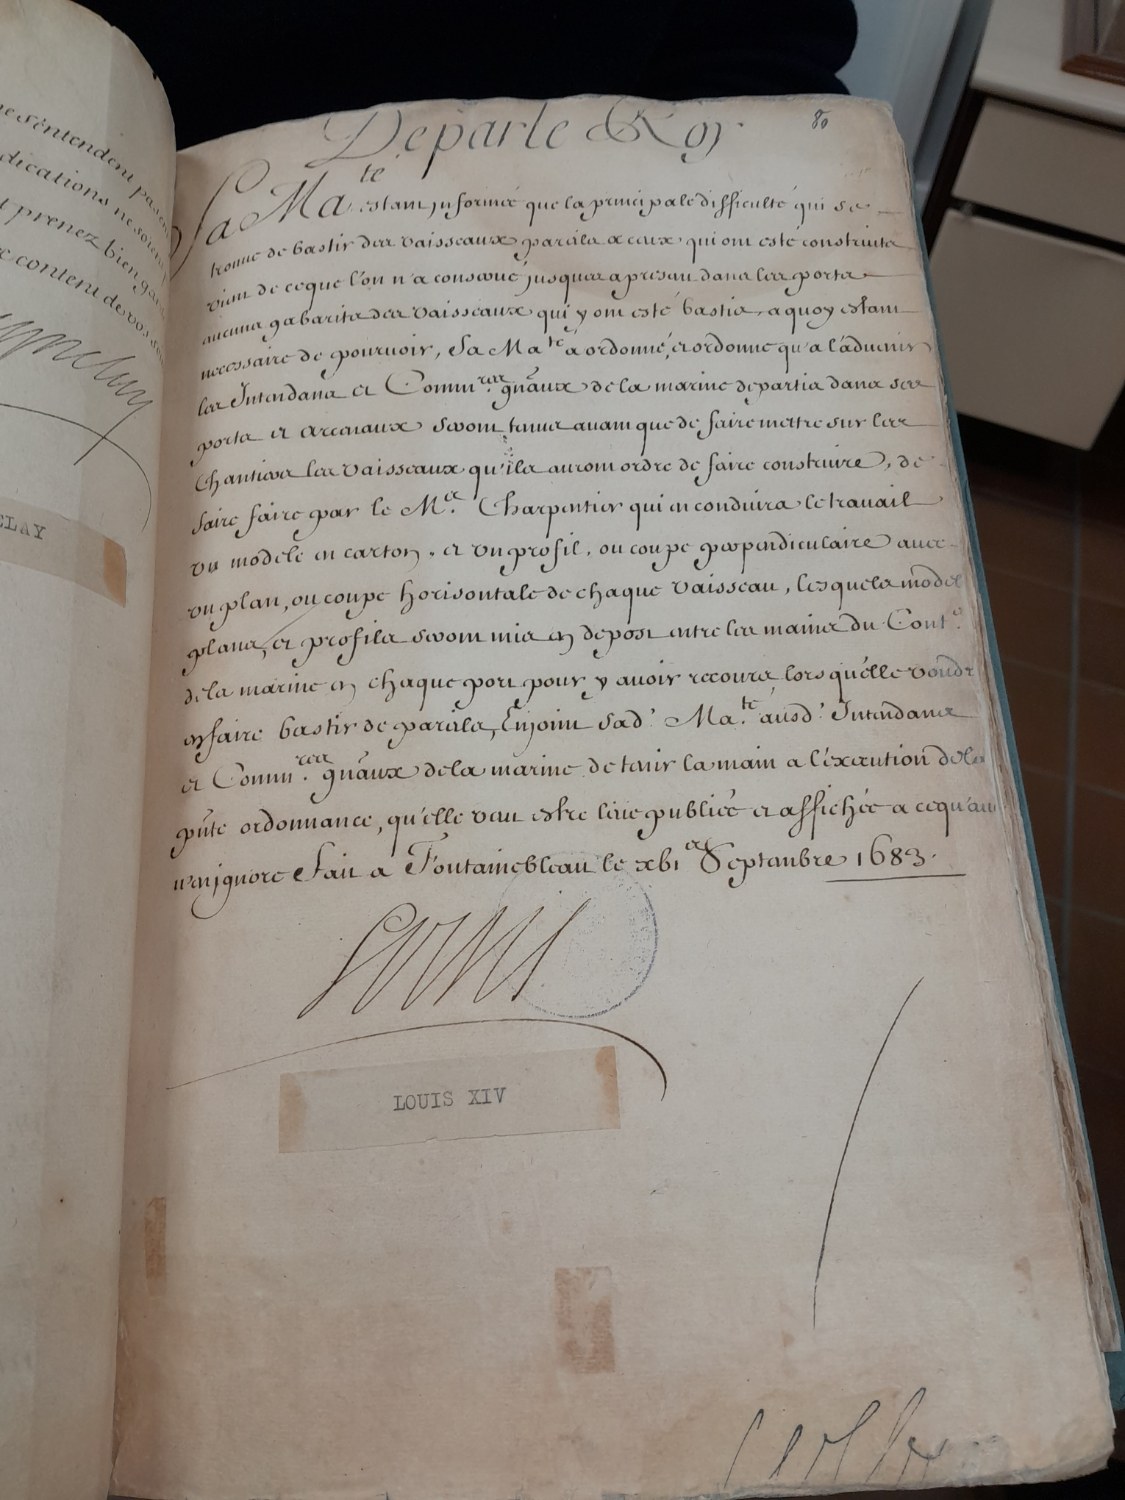 ne s'entendent pas
dications ne soient
t prenez bien ga
e content de vos
CLAY
80
De par le Roy
Sa Ma.te estant jnformée que la principale difficulté qui se
trouue de bastir des vaisseaux pareils a ceux qui ont esté construits
vient de ce que l'on n'a conserué jusques a present dans les ports
aucuns gabarits des vaisseaux qui y ont esté bastis, a quoy estant
necessaire de pouruoir, Sa Ma.te a ordonné, et ordonne qu'a l'aduenir
les Intendans et Comm.res gñaux de la marine departis dans ses
ports et arcenaux seront tenus auant que de faire mettre sur les
chantiers les vaisseaux qu'ils auront ordre de faire construire, de
faire faire par le M.e Charpentier qui en conduira le trauail
vn modele en carton, et vn profil, ou coupe perpendiculaire auec
vn plan, ou coupe horisontale de chaque vaisseau, lesquels model
plans, et profils seront mis en depost entre les mains du Cont.r
de la marine en chaque port pour y auoir recours lors qu'elle voudr
en faire bastir de pareils, Enjoint sad.e Ma.te ausd.s Intendans
et Comm.res gñaux de la marine de tenir la main a l'execution de la
pñte ordonnance, qu'elle veut estre leüe publiée et affichée a ce qu'au
n'en jgnore Fait a Fontainebleau le xbi.e Septembre 1683.
Louis
LOUIS XIV
Colbe